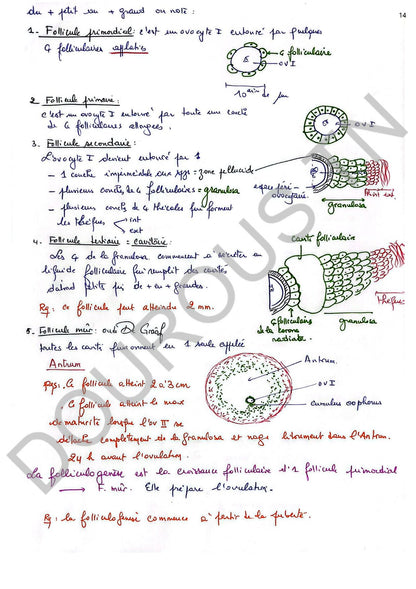 du + petit au + grand on note :
14
1- Follicule primordial: c'est un ovocyte I entouré par quelques
¢ folliculaires applaties
¢ folliculaire
ov I
2 Follicule primaire :
c'est un ovocyte I entouré par toute une couche
de ¢ folliculaires allongées.
ov I
3. Follicule secondaire :
L'ovocyte I devient entouré par 1
- 1 couche imperméable = zone pellucide
- plusieurs couches de ¢ folliculaires = granulosa
- plusieurs couches de ¢ thécales qui forment
les thèques int
ext
espace péri-
ovocytaire
granulosa
thèque int ext
4. Follicule tertiaire = cavitaire:
Les ¢ de la granulosa commencent à sécréter un
liquide folliculaire qui remplit des cavités
d'abord petites puis de + en + grandes.
Rq : ce follicule peut atteindre 2 mm.
Cavité folliculaire
¢ folliculaires
de la corona
radiata
granulosa
Theques
5. Follicule mûr: ou de Graaf
toutes les cavités fusionnent en 1 seule appelée
Antrum
Rqs: . Ce follicule atteint 2 à 3 cm
. Ce follicule atteint le max
de maturité lorsque l'ov II se
détache complètement de la granulosa et nage librement dans l'Antrum.
24 h avant l'ovulation.
Antrum.
ov I
cumulus oophorus
La folliculogenèse est la croissance folliculaire d'1 follicule primordial
→ F. mûr. Elle prépare l'ovulation.
Rq : la folliculogenèse commence à partir de la puberté.
DOUROUS TN